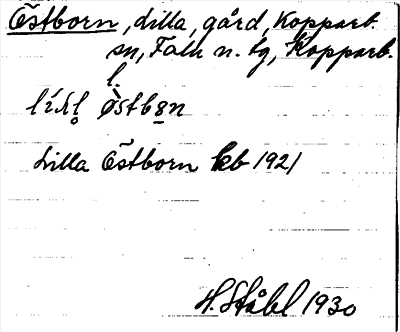 Östborn, Lilla, gård, Kopparb.
sn, Falu n. tg, Kopparb.
l.
Lilla Östborn kb 1921
H. Ståhl 1930